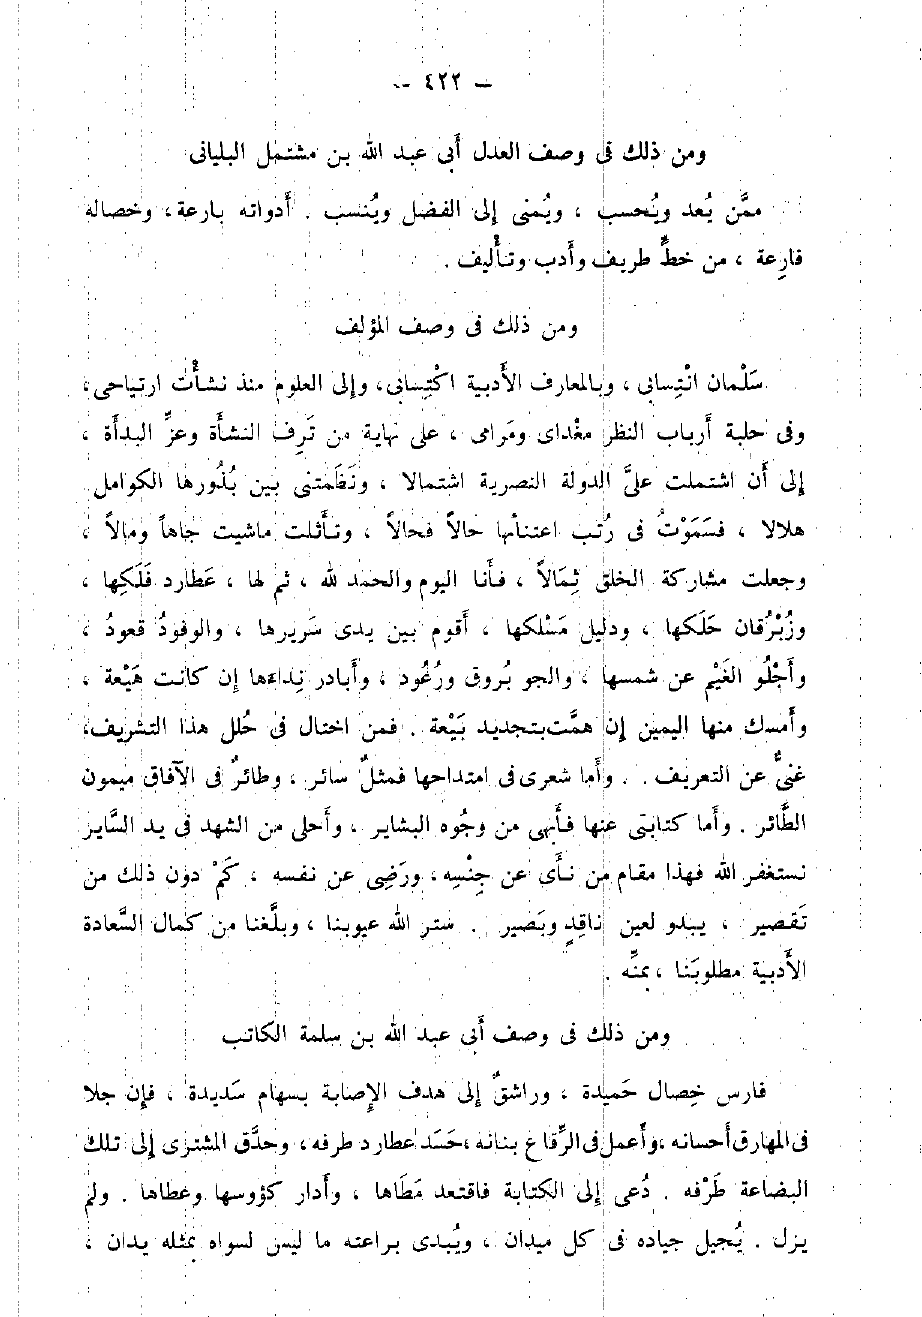 — ٤٢٢ —
ومن ذلك فى وصف العدل أبى عبد الله بن مشتمل البليانى
ممَّن يُعد ويُحسب ، ويُمنى إلى الفضل ويُنسب . أدواته بارعة، وخصاله
فارِعة ، من خطٍّ طريف وأدب وتأليف .
ومن ذلك فى وصف المؤلف
سَلْمان انْتِسابى ، وبالمعارف الأدبية اكْتِسابى، وإلى العلوم منذ نشأت ارتياحى،
وفى حلبة أرباب النظر مغْداى ومَرامى ، على نهاية من تَرِف النشأة وعزِّ البدأة ،
إلى أن اشتملت علىَّ الدولة النصرية اشتمالا ، ونَظَمتنى بين بُدُورها الكوامل
هلالا ، فسَمَوْتُ فى رُتب اعتنائها حالاً فحالاً ، وتأثلت ماشيت جاهاً ومالاً ،
وجعلت مشاركة الخلق ثِمَالاً ، فأنا اليوم والحمد لله ، ثم لها ، عَطارد فَلَكِها ،
وزُبْرُقان حَلَكها ، ودليل مَسْلكها ، أقوم بين يدى سَريرها ، والوفودُ قعودُ ،
وأَجْلُو الغَيْم عن شمسها ، والجو بُروق ورُعُود ، وأبادر نِداءها إن كانت هَيْعة ،
وأمسك منها اليمين إن همَّت بتجديد بَيْعة . فمن اختال فى حُلل هذا التشريف،
غنىٌّ عن التعريف . وأما شعرى فى امتداحها فمثلٌ سائر ، وطائرٌ فى الآفاق ميمون
الطَّائر . وأما كتابتى عنها فأبهى من وجُوه البشاير ، وأحلى من الشهد فى يد السَّاير
نستغفر الله فهذا مقام من نأى عن جِنْسِه، ورَضِى عن نفسه ، كَمْ دون ذلك من
تَقصير ، يبدو لعين ناقِدٍ وبَصير . ستر الله عيوبنا ، وبلَّغنا من كمال السَّعادة
الأدبية مطلوبَنا ، بمنِّه .
ومن ذلك فى وصف أبى عبد الله بن سلمة الكاتب
فارس خِصال حَميدة ، وراشقٌ إلى هدف الإصابة بسهام سَديدة ، فإن جلا
فى المهارق أحسانه ،وأعمل فى الرِّقاع بنانه ،حَسَد عطارد طرفه، وحدَّق المشترى إلى تلك
البضاعة طَرْفه . دُعى إلى الكتابة فاقتعد مَطَاها ، وأدار كؤوسها وعطاها . ولم
يزل . يُجيل جياده فى كل ميدان ، ويُبدى براعته ما ليس لسواه بمثله يدان ،